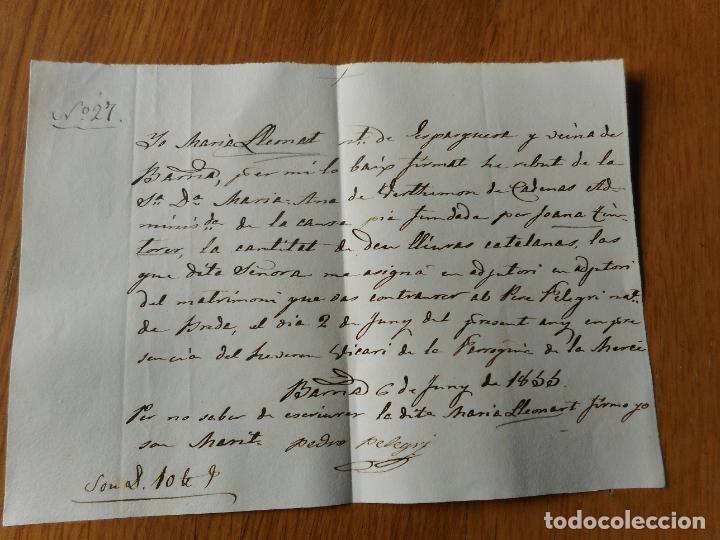 No. 27.
Yo Maria Lleonart nt. de Esparguera y veina de
Barna, per mi lo baix firmat he rebut de la
Sa. Da. Maria-Ana de Verthamon de Cadenas Ad-
minisda. de la causa pia fundada per Joana Tin-
torer, la cantitat de deu lliuras catalanas, las
que dita Señora me asigná en adjutori en adjutori
del matrimoni que vas contraurer ab Pere Pelegri nat.
de Breda, el dia 2 de Juny del present any en pre
sencia del Reverent Vicari de la Parroquia de la Mercé
Barna 6 de Juny de 1855.
Per no saber de escriurer la dita Maria Lleonart firmo yo
son Marit. Pedro Pelegrj
Son ll. 10 ll
todocoleccion
todocoleccion.net